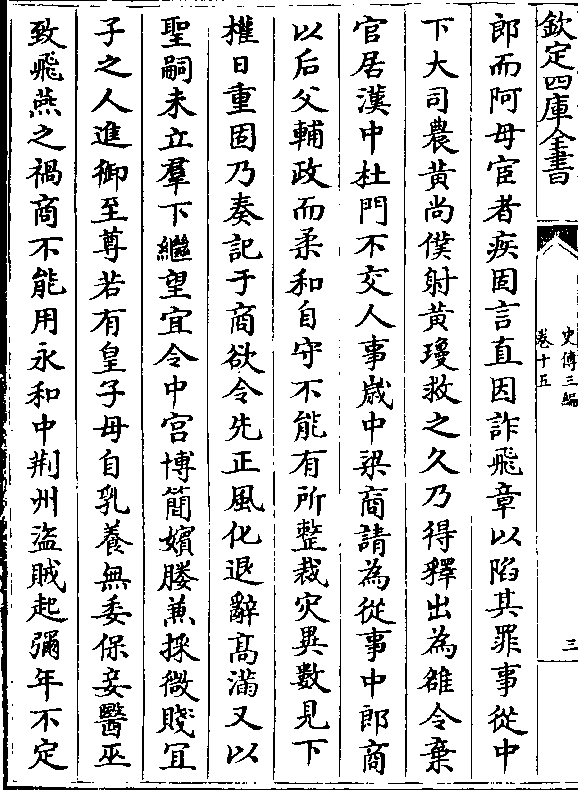 欽定四庫全書
史傳三編
卷十五
三
郎而阿母宦者疾固言直因詐飛章以陷其罪事從中
下大司農黃尚僕射黃瓊救之久乃得釋出為雒令棄
官居漢中杜門不交人事歲中梁商請為從事中郎商
以后父輔政而柔和自守不能有所整裁災異數見下
權日重固乃奏記于商欲令先正風化退辭髙滿又以
聖嗣未立羣下繼望宜令中宮博簡嬪媵兼採微賤宜
子之人進御至尊若有皇子母自乳養無委保妾醫巫
致飛燕之禍商不能用永和中荆州盜賊起彌年不定